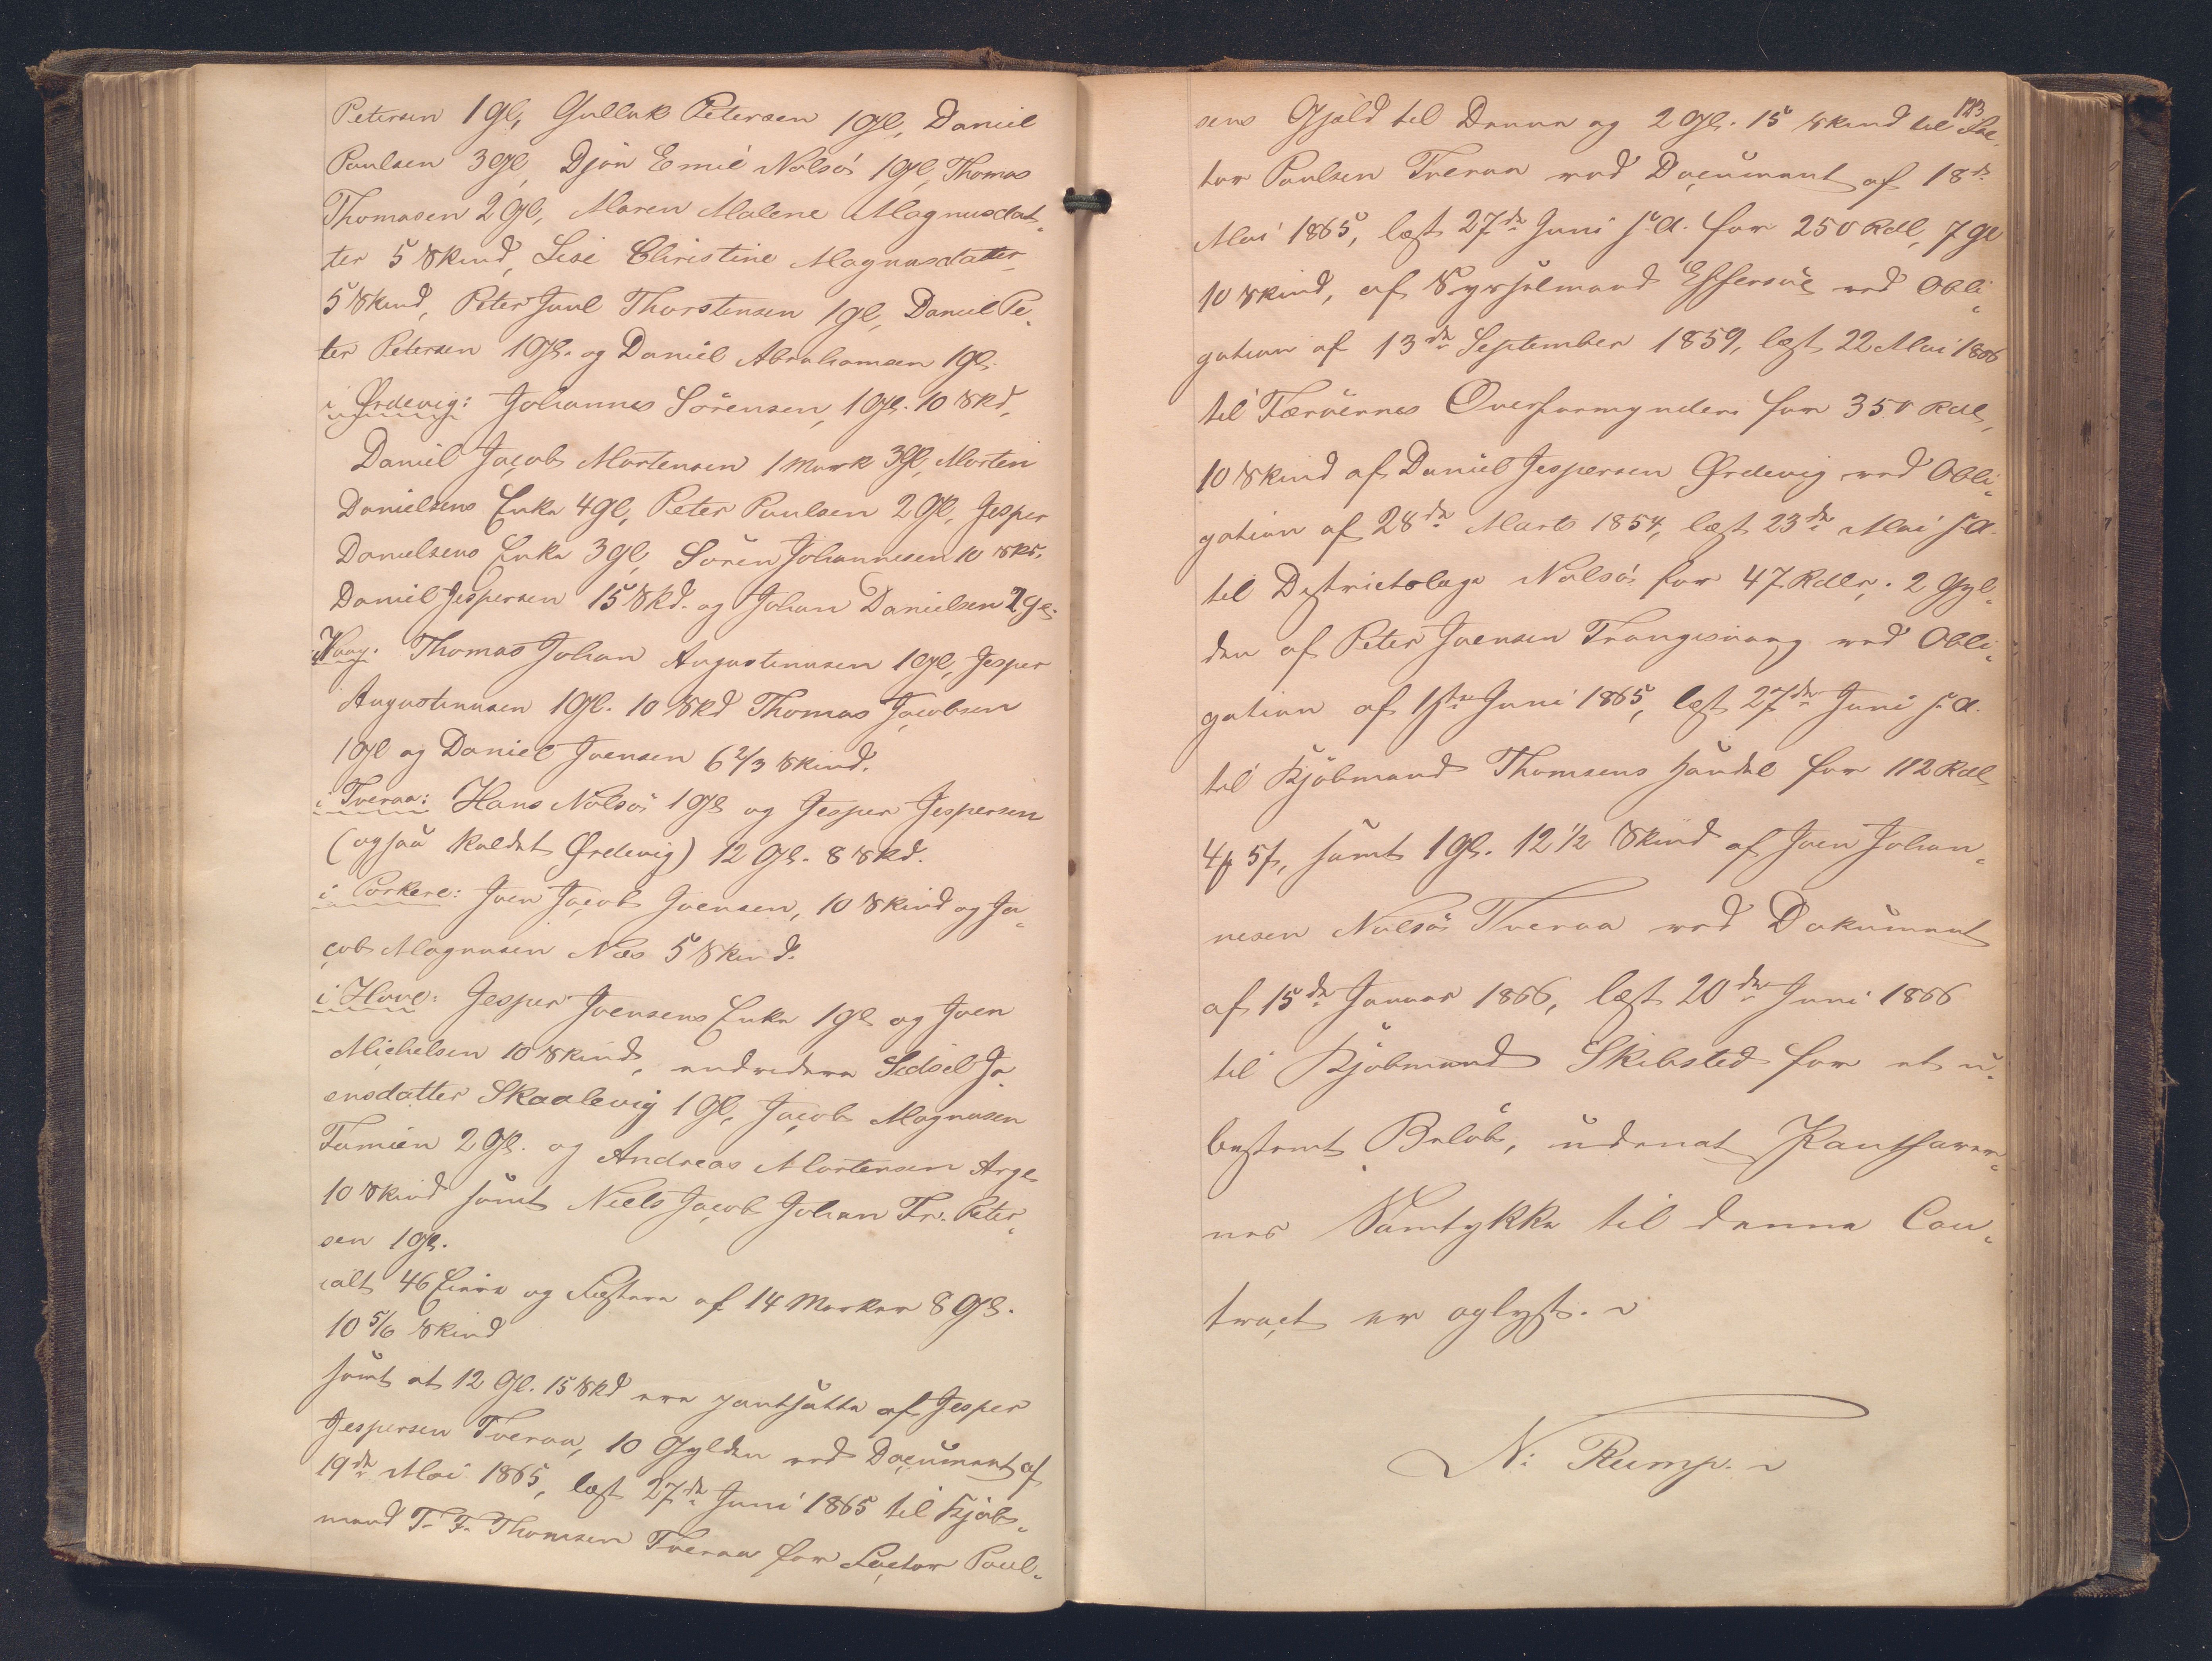 Petersen 1 Gl, Gulluk Petersen 1 Gl, Daniel
Poulsen 3 Gl, Djön Emil Nolsö 1 Gl, Thomas
Thomasen 2 Gl, Maren Malene Magnusdat-
ter 5 Skind, Lise Christine Magnusdatter
5 Skind, Peter Juul Thorstensen 1 Gl, Daniel Pe-
ter Petersen 1 Gl. og Daniel Abrahamsen 1 Gl.
i Ørdevig: Johannes Sörensen, 1 Gl. 10 Skd,
Daniel Jacob Mortensen 1 Mark 3 Gl, Morten
Danielsens Enke 4 Gl, Peter Poulsen 2 Gl, Jesper
Danielsens Enke 3 Gl, Sören Johannesen 10 Skd.
Daniel Jespersen 15 Skd. og Johan Danielsen 2 Gl.
i Vaag. Thomas Johan Augustinusen 1 Gl, Jesper
Augustinusen 1 Gl. 10 Skd Thomas Jacobsen
1 Gl og Daniel Joensen 6 2/3 Skind.
i Tveraa: Hans Nolsö 1 Gl og Jesper Jespersen
(ogsaa kaldet Ørdevig) 12 Gl. 8 Skd.
i Porkere: Joen Jacob Joensen, 10 Skind og Ja-
cob Magnusen Næs 5 Skind.
i Hove: Jesper Joensens Enke 1 Gl og Joen
Michelsen 10 Skind, endvidere Sidsel Jo-
ensdatter Skaalevig 1 Gl, Jacob Magnusen
Famien 2 Gl. og Andreas Mortensen Arge
10 Skind samt Niels Jacob Johan Fr. Peter-
sen 1 Gl.
ialt 46 Eiere og Fæstere af 14 Marker 8 Gl.
10 5/6 Skind
samt at 12 Gl. 15 Skd ere pantsatte af Jesper
Jespersen Tveraa, 10 Gylden ved Document af
19de Mai 1865, læst 27de Juni 1865 til Kjöb-
mand T. F. Thomsen Tveraa for Factor Poul-
123
sens Gjæld til Denne og 2 Gl. 15 Skind til Fac-
tor Poulsen Tveraa ved Document af 18de
Mai 1865, læst 27de Juni s. A. for 250 Rdl, 7 Gl
10 Skind, af Sysselmand Effersöe ved Obli-
gation af 13de September 1859, læst 22 Mai 1860
til Færöernes Overformynderi for 350 Rdl,
10 Skind af Daniel Jespersen Ørdevig ved Obli-
gation af 28de Marts 1854, læst 23de Mai s. A.
til Districtslæge Nolsö for 47 Rdlr, 2 Gyl-
den af Peter Joensen Trangisvaag ved Obli-
gation af 1ste Juni 1865, læst 27de Juni s. A.
til Kjöbmand Thomsens Handel for 112 Rdl
4 5 s, samt 1 Gl. 12 1/2 Skind af Joen Johan-
nesen Nolsö Tveraa ved Dokument
af 15de Januar 1866, læst 20de Juni 1866
til Kjöbmand Skibsted for et u-
bestemt Belöb, udenat Panthaver-
nes Samtykke til denne Con-
tract er oplyst.
N. Rump.